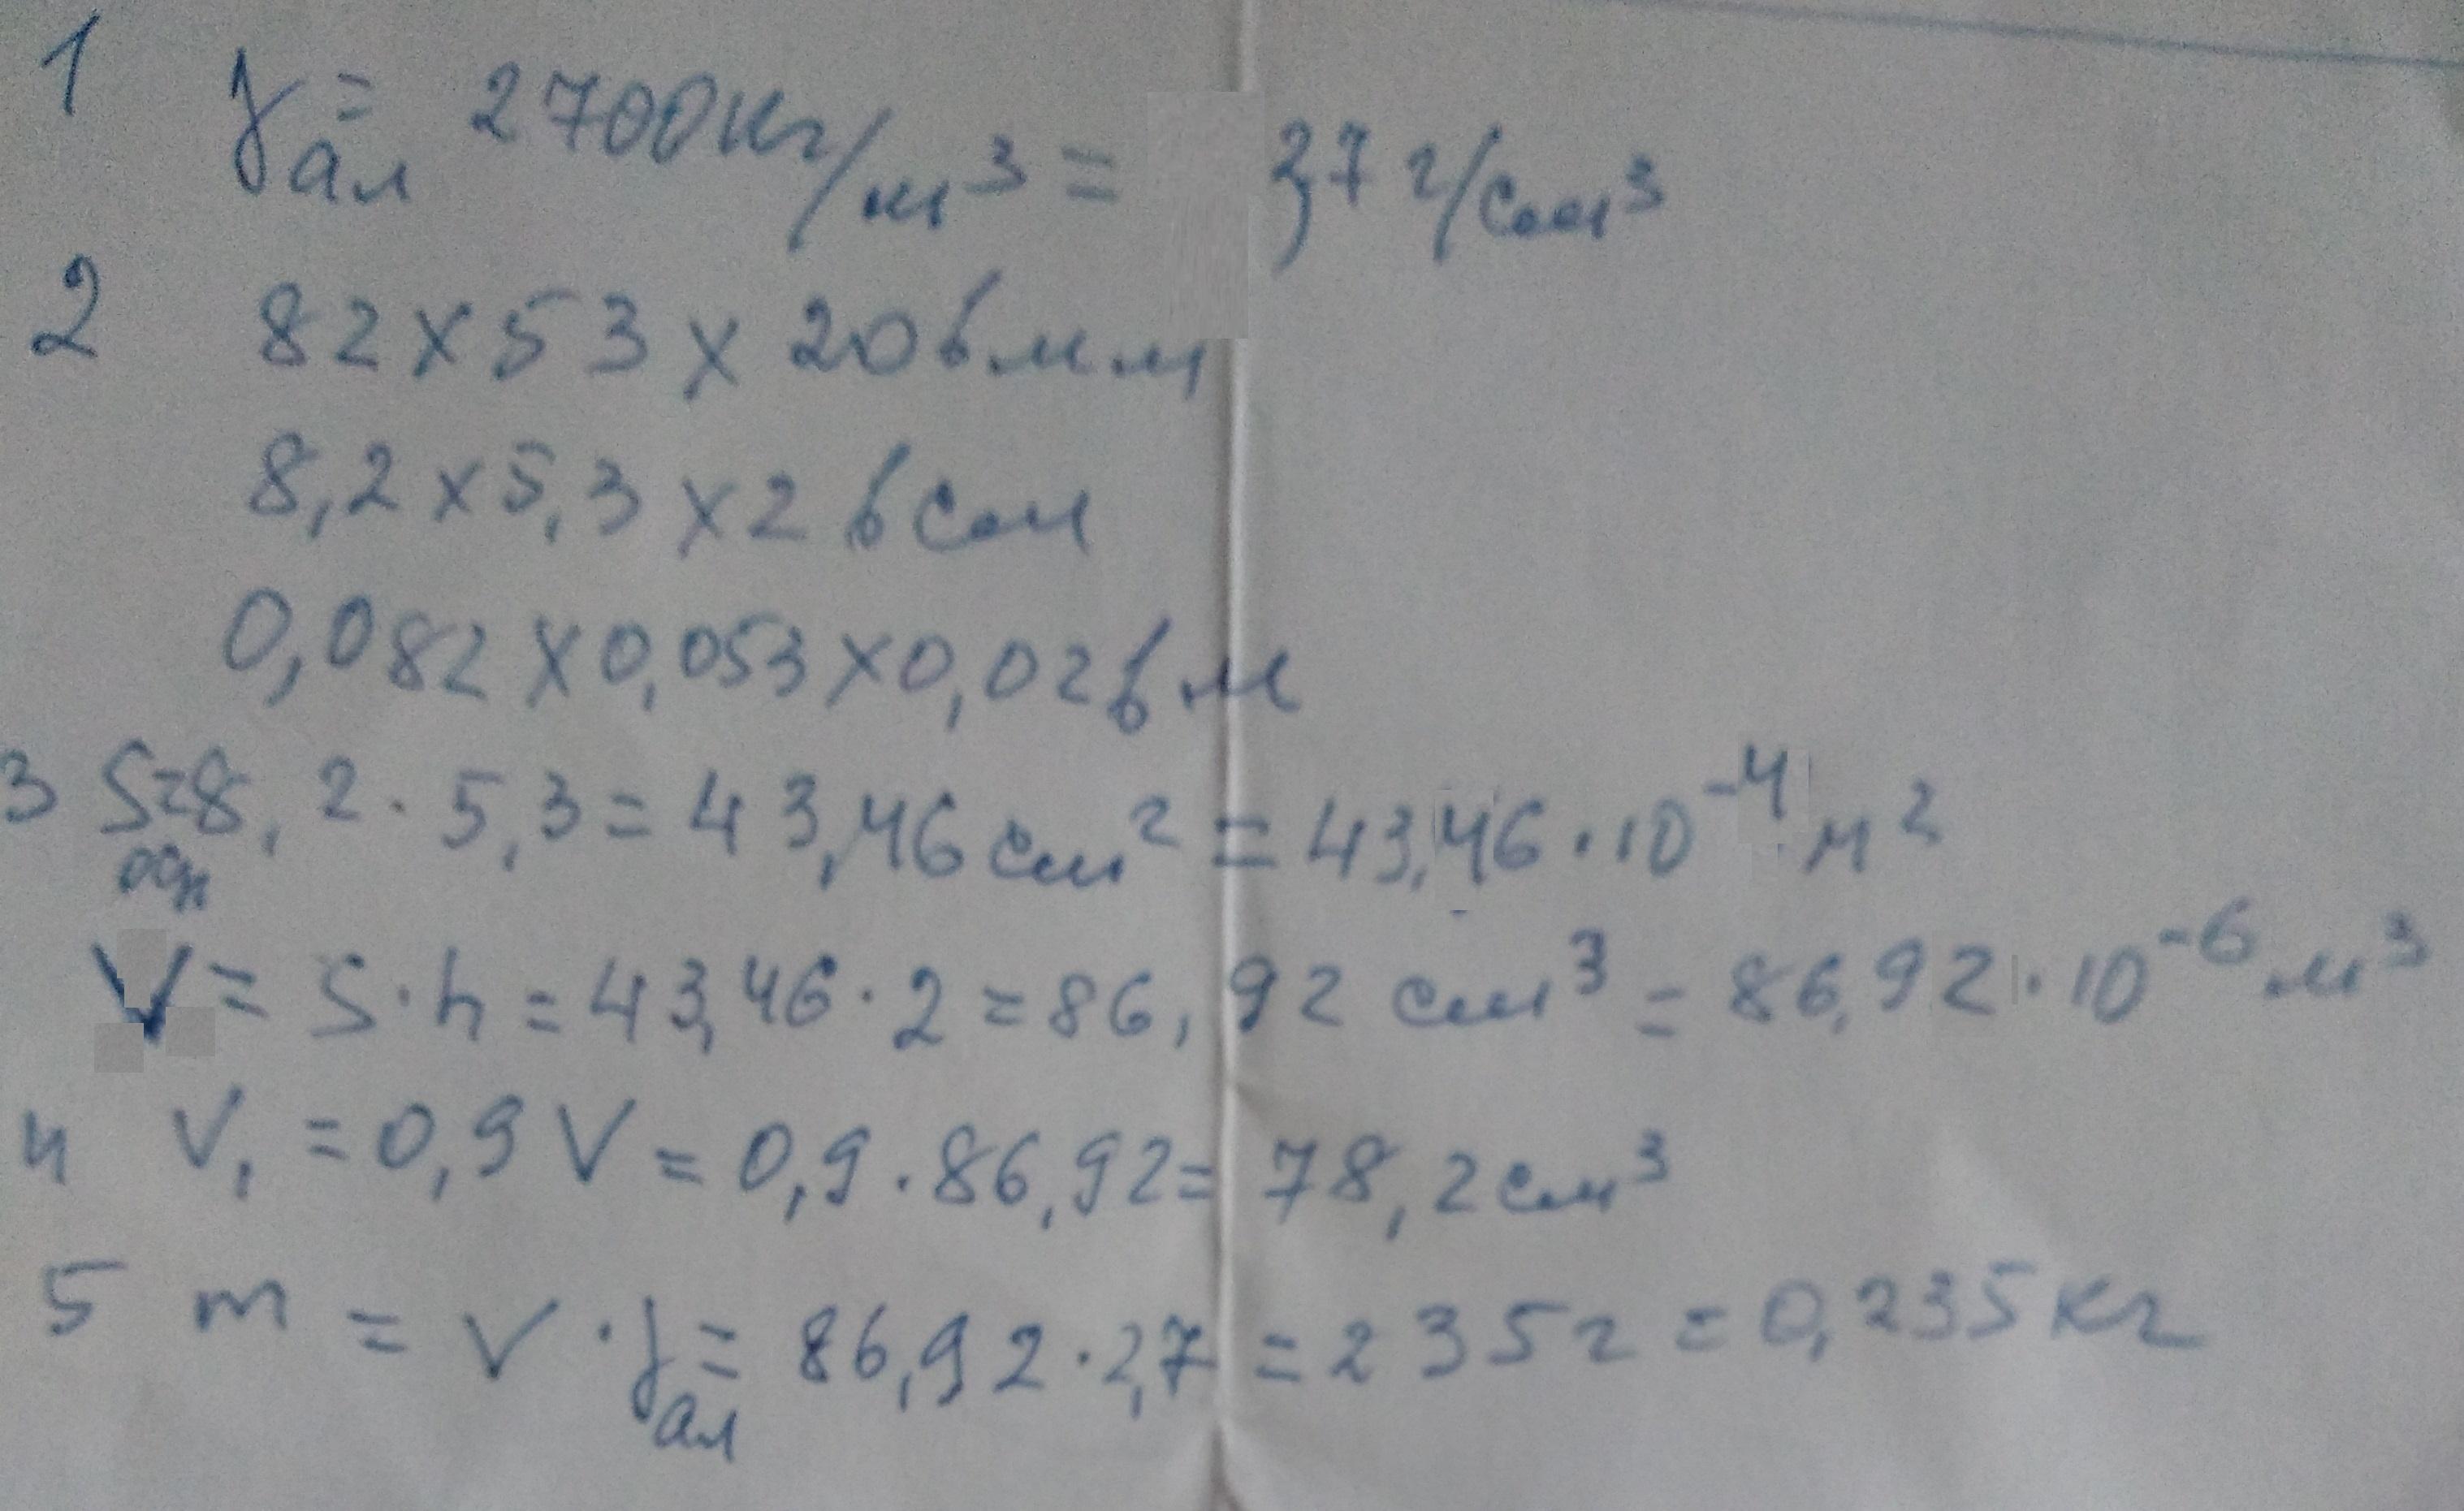 1 γал = 2700кг/м³ = 2,7 г/см³
2 82 х 53 х 20 в мм
8,2 х 5,3 х 2 в см
0,082 х 0,053 х 0,02 в м
3 Sосн = 8,2 · 5,3 = 43,46 см² = 43,46 · 10⁻⁴ м²
V = S · h = 43,46 · 2 = 86,92 см³ = 86,92 · 10⁻⁶ м³
4 V₁ = 0,9 V = 0,9 · 86,92 = 78,2 см³
5 m = V · γал = 86,92 · 2,7 = 235 г = 0,235 кг